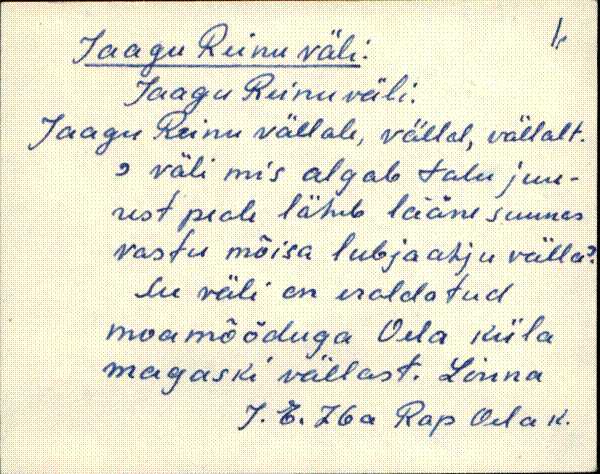 Jaagu Reinu väli.
Jaagu Reinu väli.
Jaagu Reinu vällale, vällal, vällalt.
väli mis algab talu juu-
rest peale läheb lääne suunas
vastu mõisa lubjaahju välla?
Se väli on eraldatud
moamõõduga Oela küla
magaski vällast. Linna
J. E. 76a Rap Oela k.